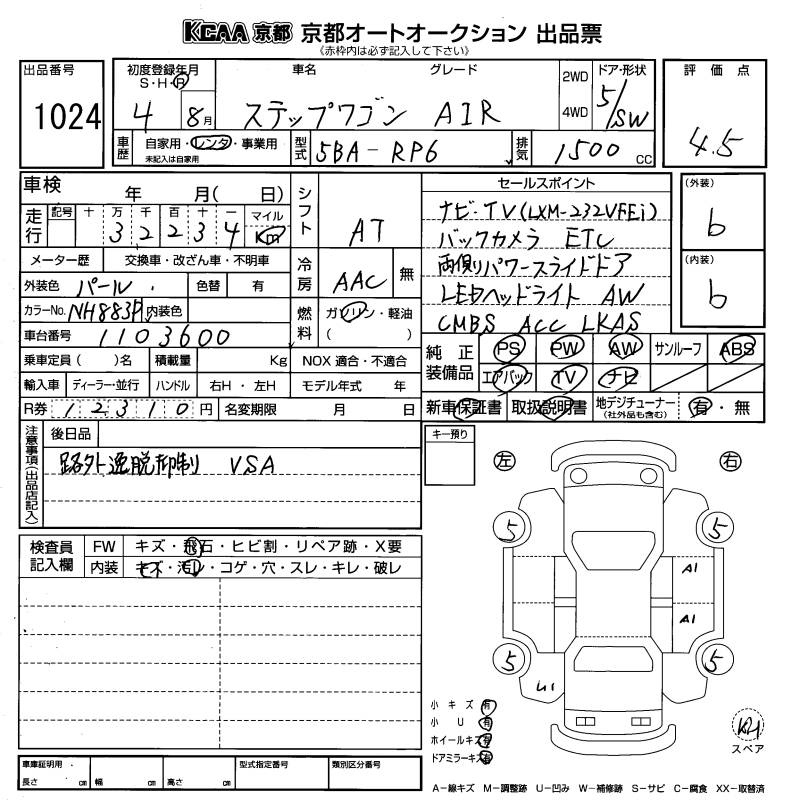 KCAA 京都 京都オートオークション 出品票
《赤枠内は必ず記入して下さい》
出品番号 1024
初度登録年月 S・H・R 4 8月
車名 グレード ステップワゴン AIR
2WD 4WD
ドア・形状 5/SW
評価点 4.5
車歴 自家用・レンタ・事業用 未記入は自家用
型式 5BA-RP6
排気 1500 CC
車検 年 月( 日)
走行 記号 十 万 千 百 十 一 マイル Km
3 2 2 3 4
メーター歴 交換車・改ざん車・不明車
外装色 パール 色替 有
カラーNo. NH883P 内装色
車台番号 1103600
乗車定員 ( )名 積載量 Kg
輸入車 ディーラー・並行 ハンドル 右H・左H
R券 12310円 名変期限 月 日
シフト AT
冷房 AAC 無
燃料 ガソリン・軽油 ( )
NOX 適合・不適合
モデル年式 年
セールスポイント
ナビ・TV(LXM-232VFEi)
バックカメラ ETC
両側パワースライドドア
LEDヘッドライト AW
CMBS ACC LKAS
(外装) 6
(内装) 6
純正装備品 PS PW AW サンルーフ ABS
エアバック TV ナビ
新車保証書 取扱説明書 地デジチューナー (社外品も含む) 有・無
注意事項(出品店記入)
後日品
路外逸脱抑制 VSA
キー預り
左 右
検査員記入欄
FW キズ・飛石・ヒビ割・リペア跡・X要
内装 キズ・汚レ・コゲ・穴・スレ・キレ・破レ
5 5
A1
A1
5 5
U1
小キズ 有
小U 有
ホイールキズ 有
ドアミラーキズ 有
スペア
車庫証明用 長さ cm 幅 cm 高さ cm
型式指定番号 類別区分番号
A－線キズ M－調整跡 U－凹み W－補修跡 S－サビ C－腐食 XX－取替済